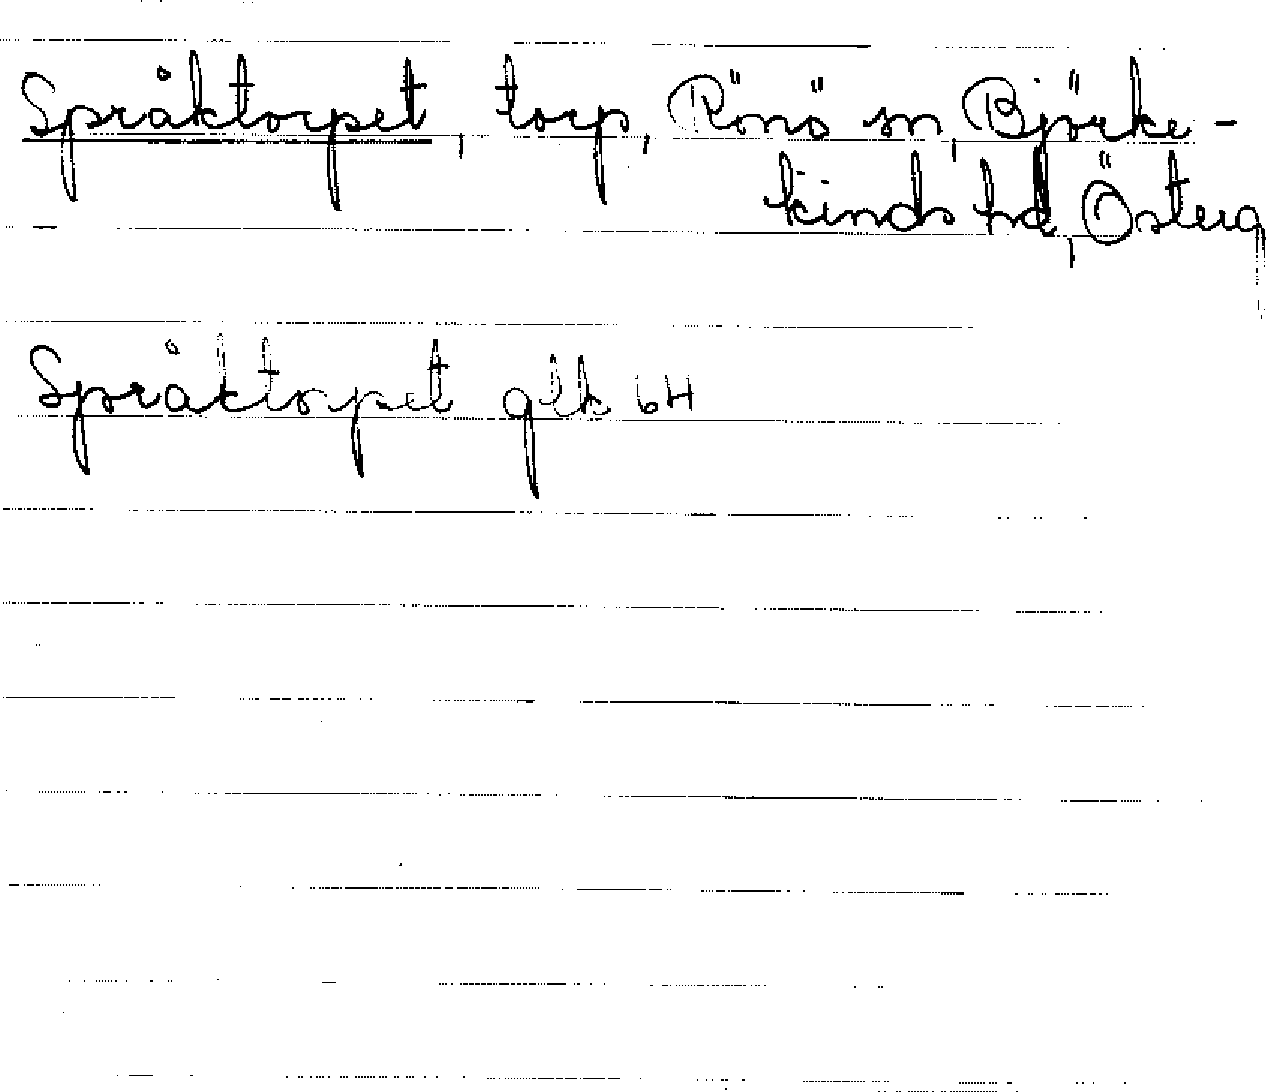 Språktorpet, torp, Rönö sn, Björke-
kinds hd, Österg
Språktorpet glk 64